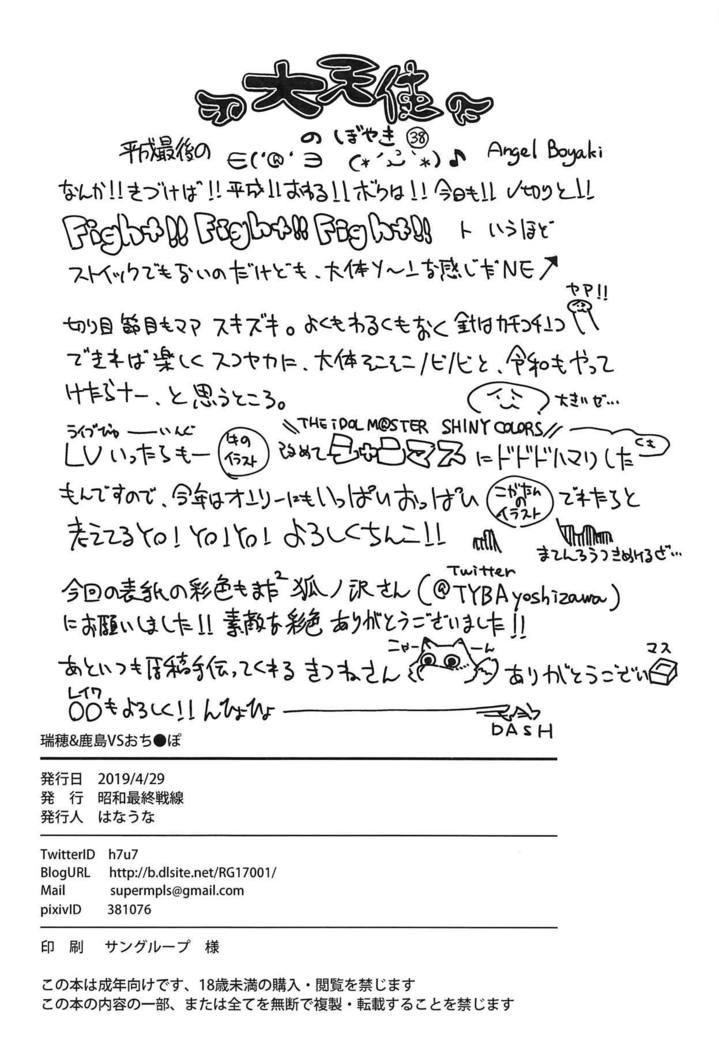 大天使
のぼやき㊳
平成最後の ∈('®'∋ (*'ω'*)♪ Angel Boyaki
なんか!!きづけば!!平成!!おわる!!ボクは!!今日も!!〆切りと!!
Fight!! Fight!! Fight!! ト いうほど
ストイックでもないのだけども、大体ソ〜ユな感じだNE↗
ヤア!!
切り目節目もマア スキズキ。よくもわるくもなく針はカチコチユコ
できれば楽しくスコヤカに、大体そこそこノビノビと、令和もやって
けたらナー、と思うところ。
大きいぜ…
ライブびゅーーーいんぐ
\\THE iDOLM@STER SHINY COLORS//
LVいったらもー
はの
イラスト
改めてシャニマスにドドドハマりした
くさ
もんですので、今年はオンリーにもいっぱいおっぱい
こがたん
の
イラスト
でれたらと
考えてるYO!YO!YO! よろしくちんこ!!
まてんろうつきぬけるぜ…
今回の表紙の彩色もまた² 狐ノ沢さん(@TYBAyoshizawa)
Twitter
にお願いしました!! 素敵な彩色 ありがとうございました!!
あといつも原稿手伝ってくれる きつねさん
ニャーーん
ありがとうござい
マス
レイワ
〇〇もよろしく!!んひょひょ
DASH
瑞穂&鹿島VSおち●ぽ
発行日 2019/4/29
発 行 昭和最終戦線
発行人 はなうな
TwitterID h7u7
BlogURL http://b.dlsite.net/RG17001/
Mail supermpls@gmail.com
pixivID 381076
印 刷 サングループ 様
この本は成年向けです、18歳未満の購入・閲覧を禁じます
この本の内容の一部、または全てを無断で複製・転載することを禁じます